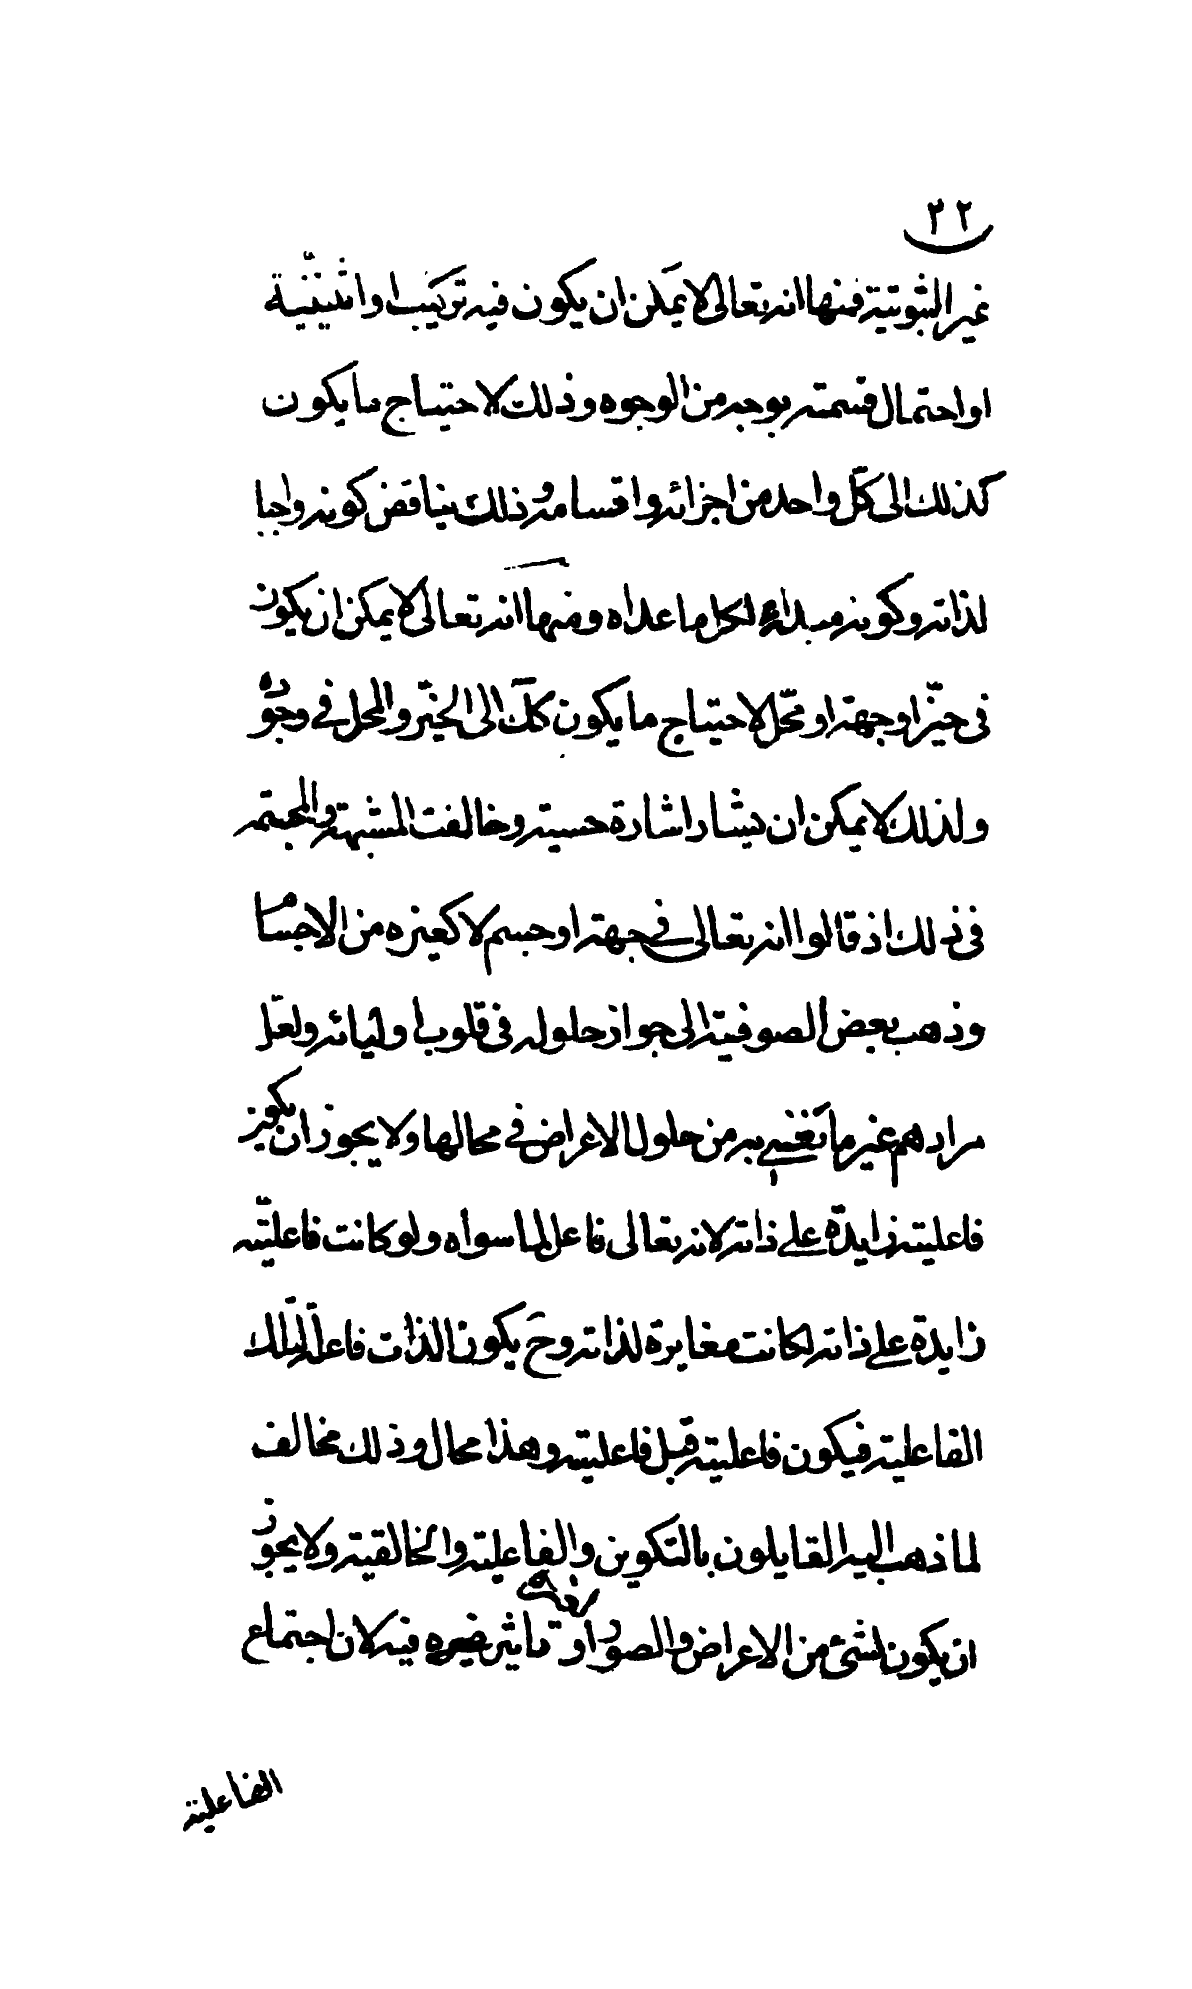 ٣٢
غير الثبوتية فمنها انه تعالى لا يمكن ان يكون فيه تركيب او اثنينيّة
او احتمال قسمته بوجه من الوجوه وذلك لاحتياج ما يكون
كذلك الى كلّ واحد من اجزائه واقسامه وذلك يناقض كونه واجبا
لذاته وكونه مبداء لكل ما عداه ومنها انه تعالى لا يمكن ان يكون
فى حيّز او جهة او محّل لاحتياج ما يكون كك الى الحيّز والمحل فى وجوده
ولذلك لا يمكن ان يشار اشارة حسية وخالفت المشبهة والمجسّمة
فى ذلك اذ قالوا انه تعالى فى جهة او جسم لا كغيره من الاجسام
وذهب بعض الصوفية الى جواز حلوله فى قلوب اوليائه ولعلّ
مرادهم غير ما نعنى به من حلول الاعراض فى محالها ولا يجوز ان يكون
فاعليته زايدة على ذاته لانه تعالى فاعل لما سواه ولو كانت فاعليّته
زايدة على ذاته لكانت مغايرة لذاته وحَ يكون الذات فاعلّا لتلك
الفاعلية فيكون فاعلية قبل فاعليته وهذا محال وذلك مخالف
لما ذهب اليه القايلون بالتكوين والفاعلية والخالقية ولا يجوز
ان يكون لشئ من الاعراض والصور او تاثير غيره فيه لان اجتماع
الفاعلية